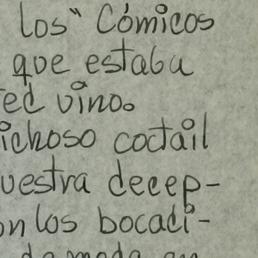 los" Cómicos
que estaba
ed vino.
ichoso coctail
uestra decep-
on los bocadi-
de moda en